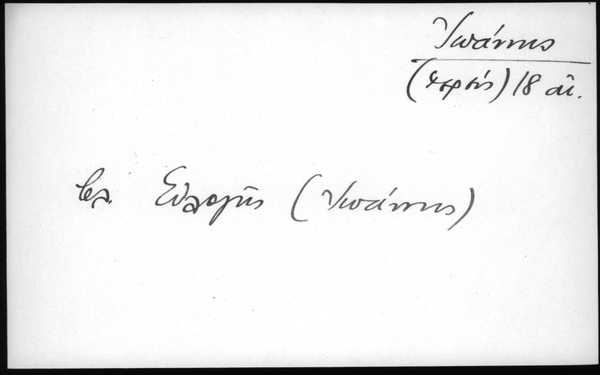 Ἰωάννης
(ἱερεύς) 18 αἰ.
βλ. Εὐλογῆς (Ἰωάννης)